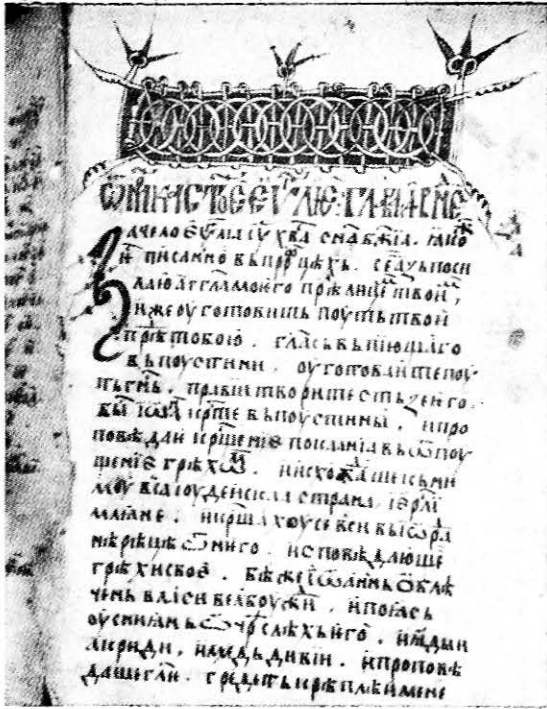 ѾМАРКАСТОЕЕѴЛІЕ ГЛАВА
Зачело еѵⷢ҇лїа і҆с҃ хв҃а сн҃а бж҃їа. ꙗ҆ко
и҆ писанно въпро҇цѣхь. се а҆зь поси
лаю а҆гг҃ла моѥго прѣⷣлицеⷨ҇ твои҆ⷨ,
и҆же оу҆готовить поуть твои
прѣⷣ тобою. глⷭ҇а въпїющаго
въпоустини. оу҆готоваите поу
ть гн҃ь. правїи творите стьзе ѥго.
бы҇ і҆ѡⷩ҇а крт҃е въпоустины, и҆про
повѣдаи крщ҃енїе покаанїа въѿпоу
щенїе грѣхѡⷨ. и҆исхождаше кьни
моу въса їоудеискаа страна. і҆ерлⷭ҇и
млꙗне. и҆крщ҃ахоусе вси въі҆ѡрⷣа
нѣ рѣцѣ ѿнѥго. и҆споведающе
грѣхи своѥ. бѣже і҆ѡаннь ѡ҆блѣ
чень власи велбоужи, и҆поꙗсь
оу҆сниꙗнь ѡ҆ чрⷭ҇лѣхь ѥго. и҆ꙗ҆ды
акриди, и҆медь диви. и҆проповѣ
даше гл҃ѥ. гредеть крѣплѣи мене